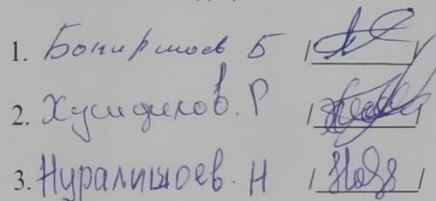 1. Бониршоев Б
2. Хушдилов. Р
3. Нуралишоев. Н